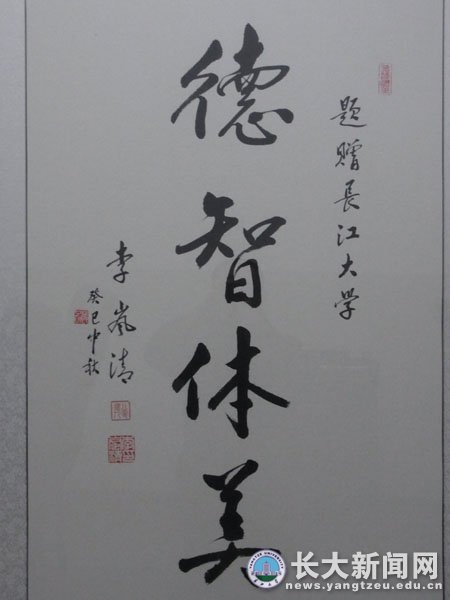 题赠长江大学
德智体美
李岚清
癸巳中秋
长大新闻网
news.yangtzeu.edu.cn